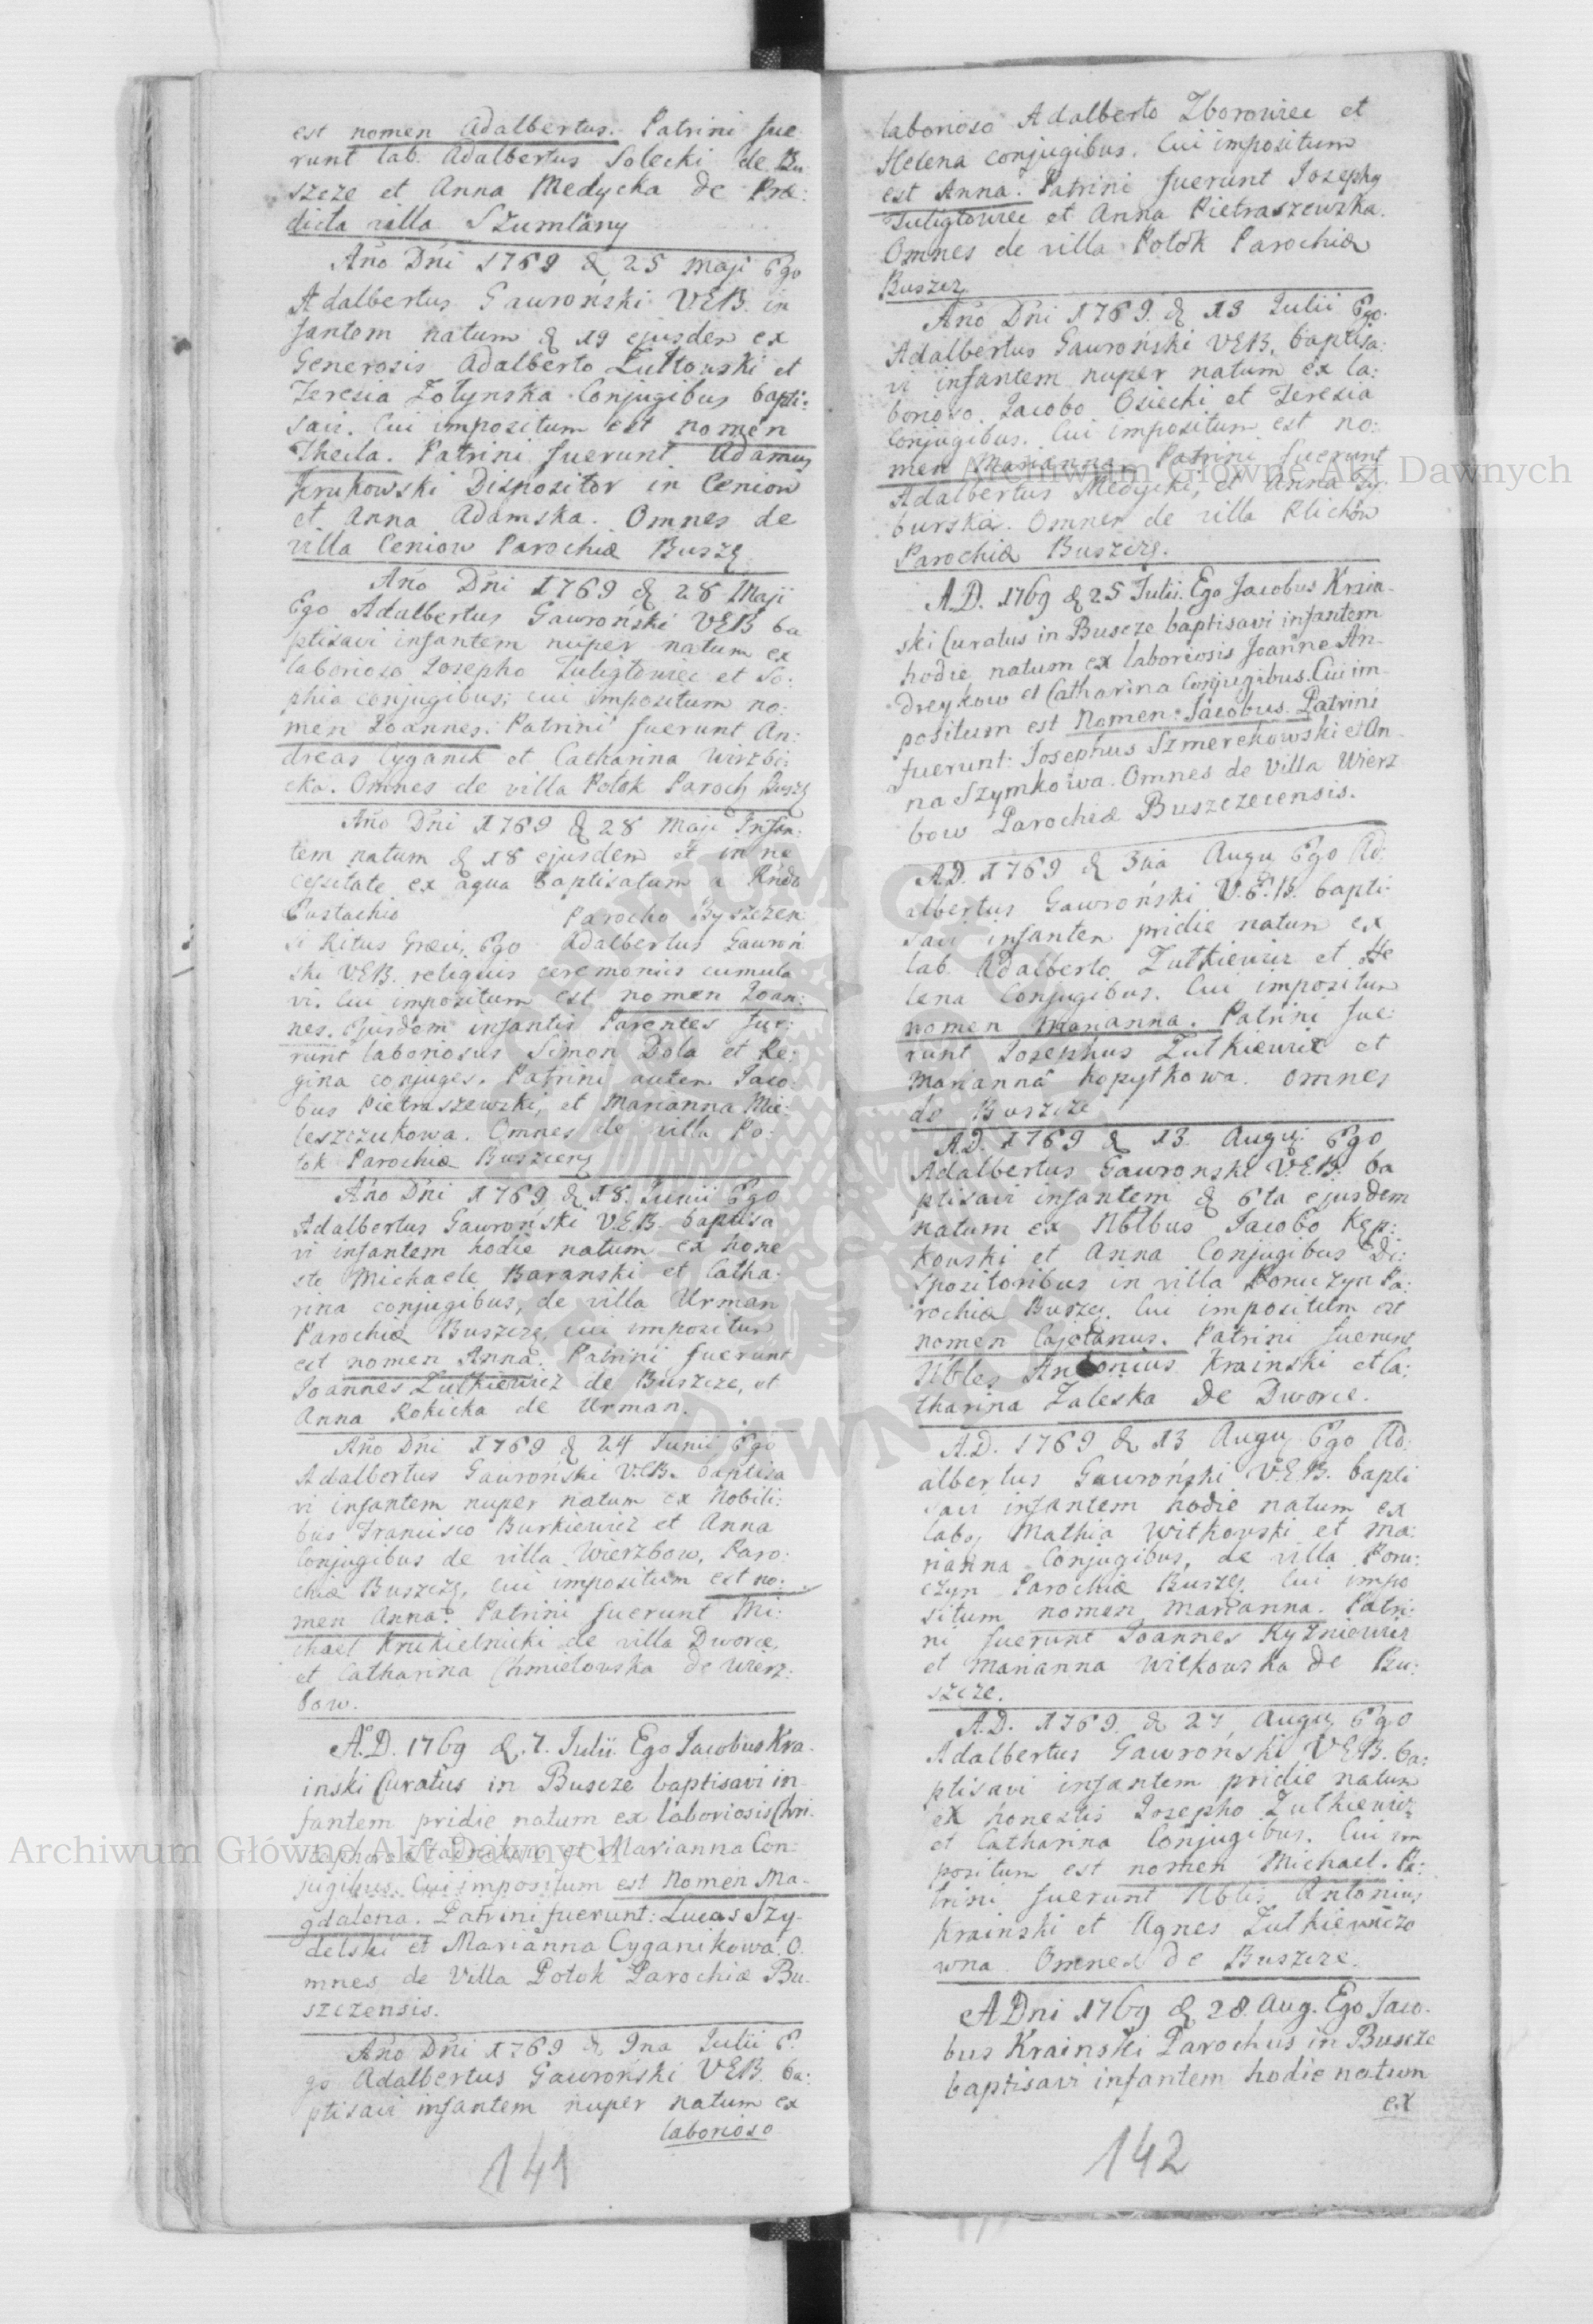 est nomen Adalbertus. Patrini fue
runt lab. Adalbertus Solecki de Bu
szcze et Anna Medycka de Præ:
dicta villa Szumlany
Año Dñi 1769 & 25 Maji Ego
Adalbertus Gawroński VEB. in
fantem natum & 19 ejusdem ex
Generosis Adalberto Lultowski et
Teresia Zołynska Conjugibus bapti:
savi. Cui impositum est nomen
Thecla. Patrini fuerunt Adamus
Krukowski Dispositor in Ceniow
et Anna Adamska. Omnes de
villa Ceniow Parochiæ Buszcz
Año Dñi 1769 & 28 Maji
Ego Adalbertus Gawroński VEB ba
ptisavi infantem nuper natum ex
laborioso Josepho Tuligłowiec et So:
phia conjugibus; cui impositum no:
men Joannes. Patrini fuerunt An:
dreas Cyganik et Catharina Wirzbi:
cka. Omnes de villa Potok Paroch Buszcz
Año Dñi 1769 & 28 Maji Infan:
tem natum & 18 ejusdem et in ne
cessitate ex aqua baptisatum a Rñdo
Eustachio Parocho Byszczen
si Ritus Græci, Ego Adalbertus Gawroń
ski VEB. religuis ceremoniis cumula
vi. Cui impositum est nomen Joan:
nes. Ejusdem infantis Parentes fue:
runt laboriosus Simon Dola et Re:
gina conjuges. Patrini autem Jaco
bus Pietraszewski, et Marianna Mie:
leszczukowa. Omnes de villa Po:
tok Parochiæ Buszczez
Año Dñi 1769 & 18. Junii Ego
Adalbertus Gawroński V.E.B. baptisa
vi infantem hodie natum ex hone
ste Michaele Baranski et Catha:
rina conjugibus, de villa Urman
Parochiæ Buszcze, cui impositum
est nomen Anna. Patrini fuerunt
Joannes Zutkiewicz de Buszcze, et
Anna Rokicka de Urman.
Año Dñi 1769 & 24 Junii Ego
Adalbertus Gawroński V.E.B. baptisa
vi infantem nuper natum ex Nobili:
bus Francisco Burkiewicz et Anna
Conjugibus de villa Wierzbow, Paro:
chiæ Buszcze, cui impositum est no:
men Anna. Patrini fuerunt Mi:
chael Krukielnicki de villa Dworce,
et Catharina Chmielowska de Wierz:
bow.
A.D. 1769 &. 7. Julii Ego Jacobus Kra-
inski Curatus in Buscze baptisavi in-
fantem pridie natum ex laboriosis Chri-
stophoro et Marianna Con:
jugibus. Cui impositum est Nomen Ma-
gdalena. Patrini fuerunt: Lucas Szy-
delski et Marianna Cyganikowa. O.
mnes de Villa Potok Parochiæ Bu.
szczensis.
Año Dñi 1769 & 9na Julii E.
go Adalbertus Gawroński VEB. ba:
ptisavi infantem nuper natum ex
laborioso
141
laborioso Adalberto Zborowiec et
Helena conjugibus. Cui impositum
est Anna. Patrini fuerunt Josephy
Tuligłowiec et Anna Pietraszewska.
Omnes de villa Potok Parochiæ
Buszcz.
Año Dñi 1769. & 13 Julii Ego.
Adalbertus Gawroński VEB. baptisa:
vi infantem nuper natum ex la:
borioso Jacobo Osiecki et Teresia
Conjugibus. Cui impositum est no:
men Marianna. Patrini fuerunt
Adalbertus Medycki, et Anna
burska. Omnes de villa Plichow
Parochiæ Buszcze.
A.D. 1769 & 25 Julii. Ego Jacobus Krain-
ski Curatus in Buscze baptisavi infantem
hodie natum ex laboriosis Joanne An-
dreykow et Catharina Conjugibus. Cui im-
positum est Nomen: Jacobus. Patrini
fuerunt: Josephus Szmerekowski et An-
na Szymkowa. Omnes de Villa Wierz
bow Parochiæ Buszczecensis.
A.D. 1769 & 3tia Augu Ego Ad:
albertus Gawroński V.E.B. bapti:
savi infantem pridie natum ex
lab. Adalberto Zutkiewicz et He
lena Conjugibus. Cui impositum
nomen Marianna. Patrini fue:
runt Josephus Zutkiewicz et
Marianna Kopytkowa. Omnes
de Buszcze
A.D. 1769 & 13. Augu Ego
Adalbertus Gawronski V.E.B. ba
ptisavi infantem & 6ta ejusdem
natum ex Nblbus Jacobo Kęp:
kowski et Anna Conjugibus Di:
spositoribus in villa Poruczyn Pa:
rochiæ Buszcz. Cui impositum est
nomen Cajetanus. Patrini fuerunt
Nbles Antonius Krainski et Ca:
tharina Zaleska de Dworce.
A.D. 1769 & 13 Augu Ego Ad:
albertus Gawroński V.E.B. bapti
savi infantem hodie natum ex
labo, Mathia Witkowski et Ma:
rianna Conjugibus, de villa Poru:
czyn Parochiæ Buszcz. Cui impo
situm nomen Marianna. Patri:
ni fuerunt Joannes Kyźniewicz
et Marianna Wilkowska de Bu:
szcze.
A.D. 1769 & 27 Augu Ego
Adalbertus Gawroński VEB. ba:
ptisavi infantem pridie natum
ex honestis Josepho Zutkiewicz
et Catharina Conjugibus. Cui im
positum est nomen Michael. Pa:
trini fuerunt Nbles Antonius
Krainski et Agnes Zutkiewiczo
wna. Omnes de Buszcze.
A Dni 1769 & 28 Aug. Ego Jaco-
bus Krainski Parochus in Buscze
baptisavi infantem hodie natum
ex
142
Archiwum Główne Akt Dawnych
Archiwum Główne Akt Dawnych